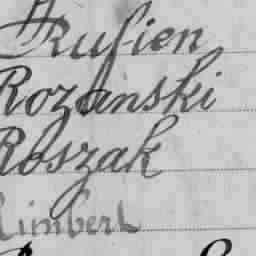 Rufien
Rozanski
Roszak
Rimbert